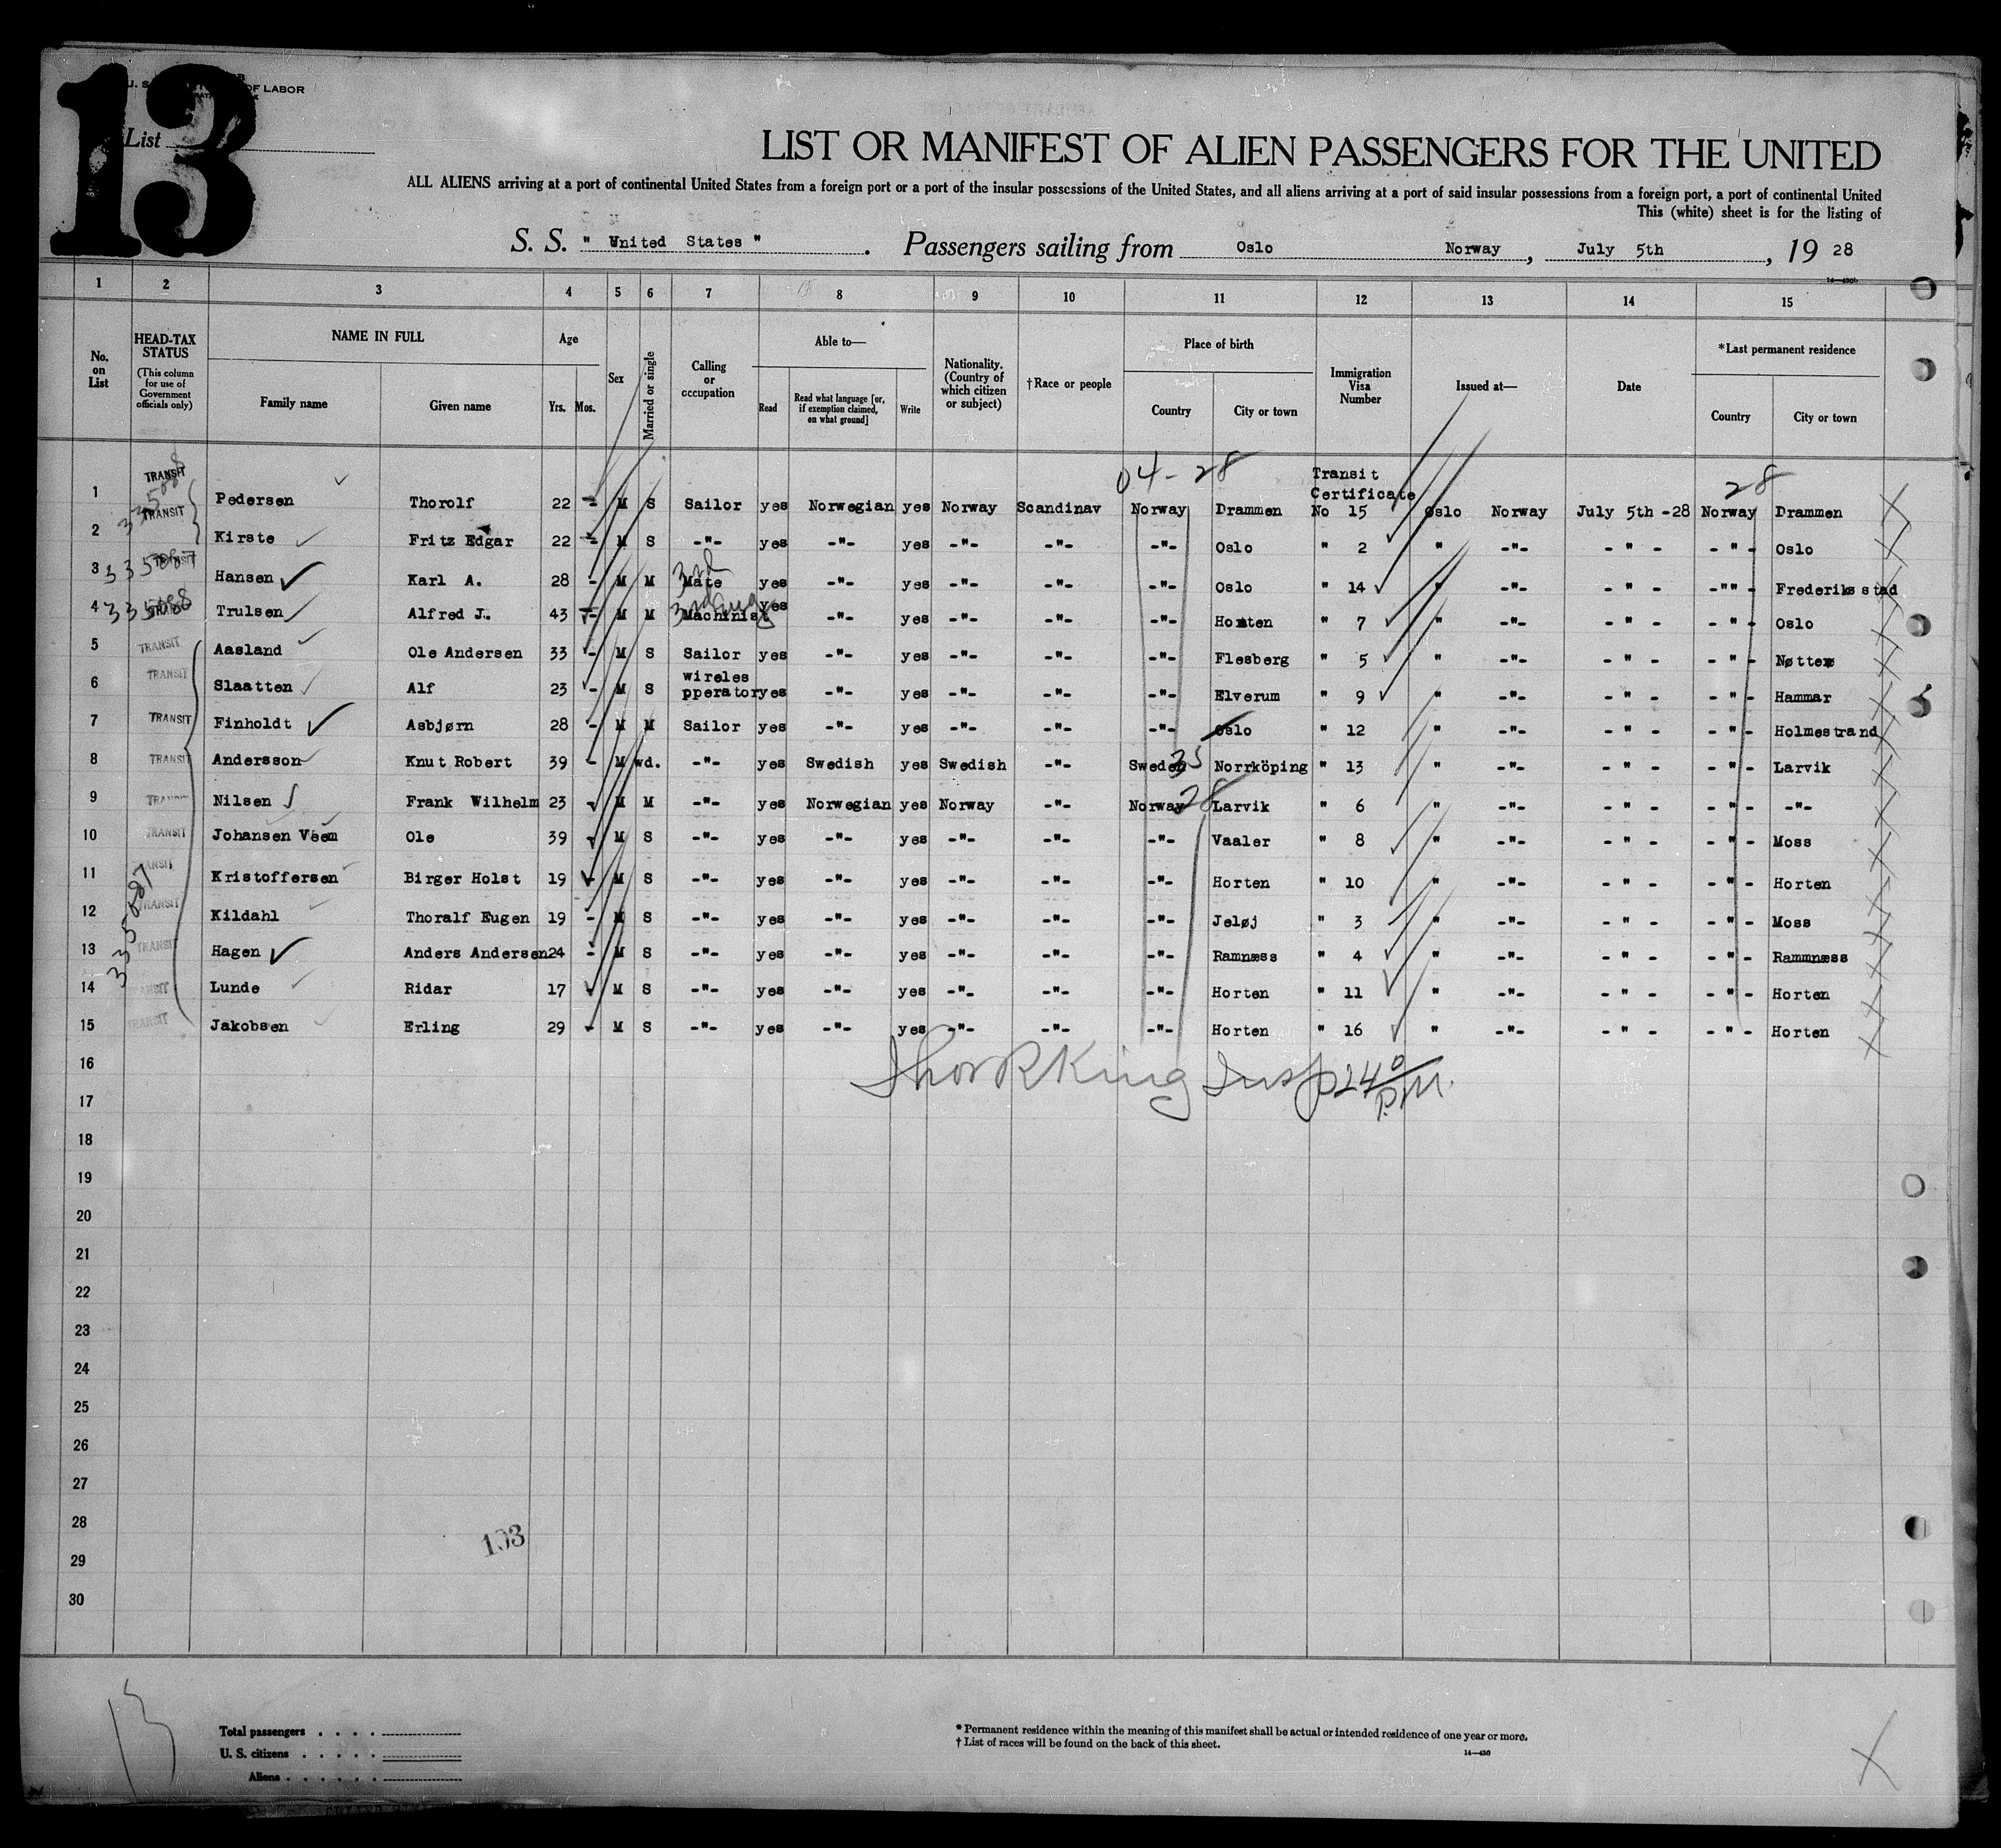 13
U. S. OF LABOR
List
LIST OR MANIFEST OF ALIEN PASSENGERS FOR THE UNITED
ALL ALIENS arriving at a port of continental United States from a foreign port or a port of the insular possessions of the United States, and all aliens arriving at a port of said insular possessions from a foreign port, a port of continental United
This (white) sheet is for the listing of
S. S. " United States " . Passengers sailing from Oslo Norway , July 5th , 19 28
1 2 3 4 5 6 7 8 9 10 11 12 13 14 15
No. on List
HEAD-TAX STATUS
(This column for use of Government officials only)
NAME IN FULL
Family name
Given name
Age
Yrs. Mos.
Sex
Married or single
Calling or occupation
Able to—
Read
Read what language [or, if exemption claimed, on what ground]
Write
Nationality. (Country of which citizen or subject)
†Race or people
Place of birth
Country
City or town
Immigration Visa Number
Issued at—
Date
*Last permanent residence
Country
City or town
04-28
28
Transit
Certificate
1 TRANSIT Pedersen Thorolf 22 - M S Sailor yes Norwegian yes Norway Scandinav Norway Drammen No 15 Oslo Norway July 5th -28 Norway Drammen
2 TRANSIT Kirste Fritz Edgar 22 - M S -"- yes -"- yes -"- -"- -"- Oslo " 2 " -"- - " - - " - Oslo
3rd
3 335087 Hansen Karl A. 28 - M M Mate yes -"- yes -"- -"- -"- Oslo " 14 " -"- - " - -"" - Frederiksstad
3rd Eng
4 335088 Trulsen Alfred J. 43 - M M Machinist yes -"- yes -"- -"- -"- Horten " 7 " -"- - " - - " - Oslo
5 TRANSIT Aasland Ole Andersen 33 - M S Sailor yes -"- yes -"- -"- -"- Flesberg " 5 " -"- - " - - " - Nøtterø
6 TRANSIT Slaatten Alf 23 - M S wireles pperator yes -"- yes -"- -"- -"- Elverum " 9 " -"- - " - - " - Hammar
7 TRANSIT Finholdt Asbjørn 28 - M M Sailor yes -"- yes -"- -"- -"- Oslo " 12 " -"- - " - - " - Holmestrand
8 TRANSIT Andersson Knut Robert 39 - M wd. -"- yes Swedish yes Swedish -"- Sweden 35 Norrköping " 13 " -"- - " - - " - Larvik
9 TRANSIT Nilsen Frank Wilhelm 23 - M M -"- yes Norwegian yes Norway -"- Norway 28 Larvik " 6 " -"- - " - - " - -"-
10 TRANSIT Johansen Veem Ole 39 - M S -"- yes -"- yes -"- -"- -"- Vaaler " 8 " -"- - " - - " - Moss
11 TRANSIT Kristoffersen Birger Holst 19 - M S -"- yes -"- yes -"- -"- -"- Horten " 10 " -"- - " - - " - Horten
12 TRANSIT Kildahl Thoralf Eugen 19 - M S -"- yes -"- yes -"- -"- -"- Jeløj " 3 " -"- - " - - " - Moss
13 TRANSIT Hagen Anders Andersen 24 - M S -"- yes -"- yes -"- -"- -"- Ramnæss " 4 " -"- - " - - " - Rammnæss
14 TRANSIT Lunde Ridar 17 - M S -"- yes -"- yes -"- -"- -"- Horten " 11 " -"- - " - - " - Horten
15 TRANSIT Jakobsen Erling 29 - M S -"- yes -"- yes -"- -"- -"- Horten " 16 " -"- - " - - " - Horten
335087
16
Thor R King Insp
P.M.
17
18
19
20
21
22
23
24
25
26
27
28
103
29
30
Total passengers . . . .
U. S. citizens . . . . .
Aliens . . . . . .
* Permanent residence within the meaning of this manifest shall be actual or intended residence of one year or more.
† List of races will be found on the back of this sheet.
14—430